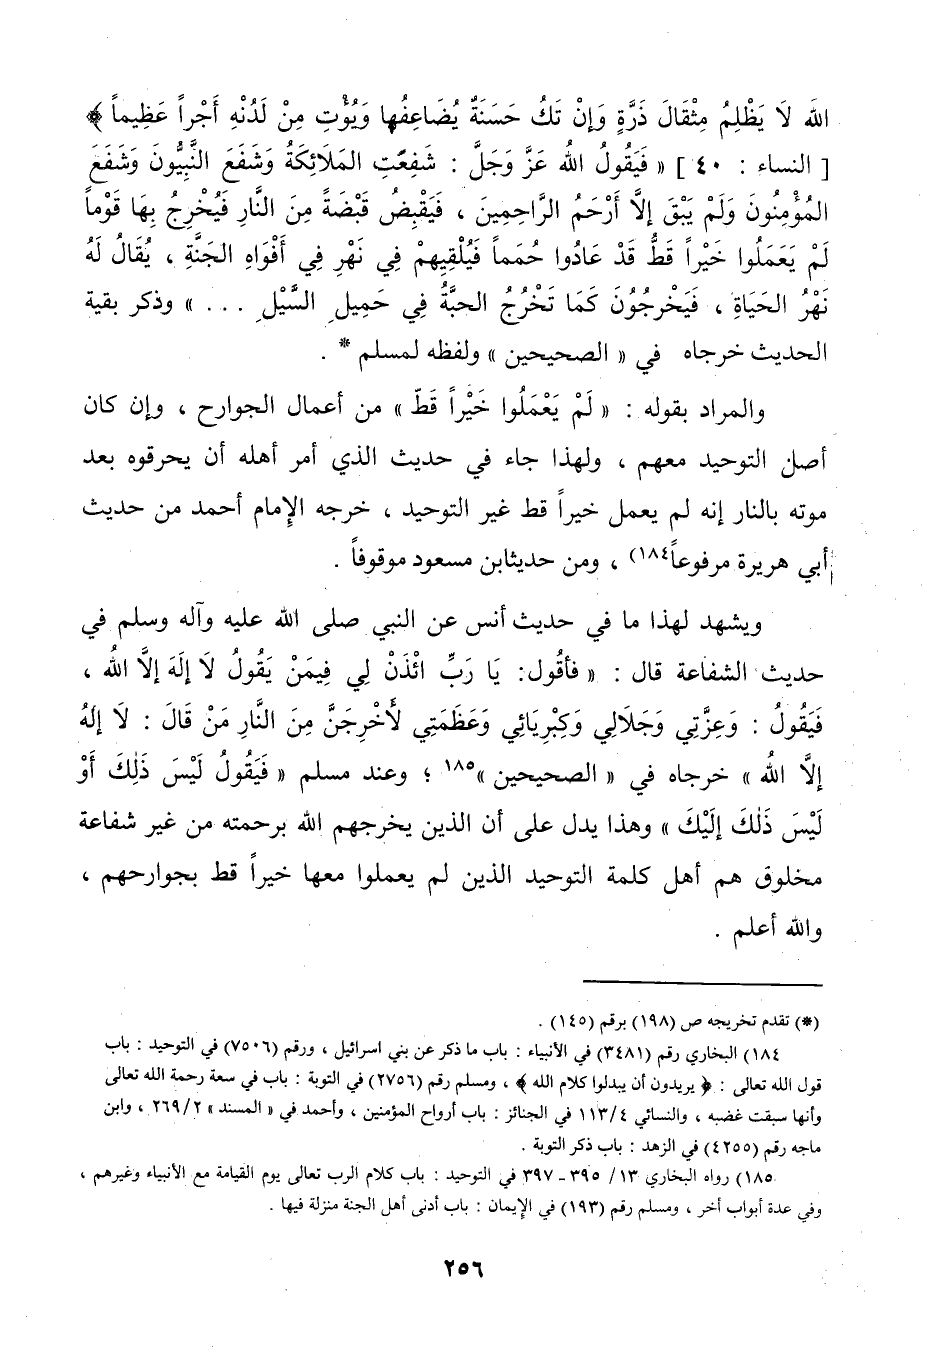 اللهَ لَا يَظْلِمُ مِثْقَالَ ذَرَّةٍ وَإِنْ تَكُ حَسَنَةٌ يُضَاعِفُها وَيُؤْتِ مِنْ لَدُنْهِ أَجْراً عَظِيماً ﴾
[ النساء : ٤٠ ] « فَيَقُولُ اللهُ عَزَّ وَجَلَّ : شَفِعَتِ المَلَائِكَةُ وَشَفَعَ النَّبِيُّونَ وَشَفَعَ
المُؤْمِنُونَ وَلَمْ يَبْقَ إِلَّا أَرْحَمُ الرَّاحِمِينَ ، فَيَقْبِضُ قَبْضَةً مِنَ النَّارِ فَيُخْرِجُ بِهَا قَوْماً
لَمْ يَعَمَلُوا خَيْراً قَطُّ قَدْ عَادُوا حُمَماً فَيُلْقِيهِمْ فِي نَهْرِ فِي أَفْوَاهِ الجَنَّةِ ، يُقَالُ لَهُ
نَهْرُ الحَيَاةِ ، فَيَخْرجُونَ كَمَا تَخْرُجُ الحبَّةُ فِي حَمِيلِ السَّيْلِ ... » وذكر بقية
الحديث خرجاه في « الصحيحين » ولفظه لمسلم * .
والمراد بقوله : « لَمْ يَعْمَلُوا خَيْراً قَطّ » من أعمال الجوارح ، وإن كان
أصل التوحيد معهم ، ولهذا جاء في حديث الذي أمر أهله أن يحرقوه بعد
موته بالنار إنه لم يعمل خيراً قط غير التوحيد ، خرجه الإمام أحمد من حديث
أبي هريرة مرفوعاً١٨٤) ، ومن حديثابن مسعود موقوفاً .
ويشهد لهذا ما في حديث أنس عن النبي صلى الله عليه وآله وسلم في
حديث الشفاعة قال : « فأقُول: يَا رَبِّ ائْذَنْ لِي فِيمَنْ يَقُولُ لَا إِلَهَ إلَّا اللهُ ،
فَيَقُولُ : وَعِزَّتِي وَجَلَالِي وَكِبْرِيَائِي وَعَظَمَتِي لأُخْرِجَنَّ مِنَ النَّارِ مَنْ قَالَ : لَا إِلهُ
إِلَّا اللهُ » خرجاه في « الصحيحين »١٨٥ ؛ وعند مسلم « فَيَقُولُ لَيْسَ ذَلِكَ أَوْ
لَيْسَ ذَلكَ إِلَيْكَ » وهذا يدل على أن الذين يخرجهم الله برحمته من غير شفاعة
مخلوق هم أهل كلمة التوحيد الذين لم يعملوا معها خيراً قط بجوارحهم ،
والله أعلم .
(*) تقدم تخريجه ص (١٩٨) برقم (١٤٥) .
١٨٤) البخاري رقم (٣٤٨١) في الأنبياء : باب ما ذكر عن بني اسرائيل ، ورقم (٧٥٠٦) في التوحيد : باب
قول الله تعالى : ﴿ يريدون أن يبدلوا كلام الله ﴾ ، ومسلم رقم (٢٧٥٦) في التوبة : باب في سعة رحمة الله تعالى
وأنها سبقت غضبه ، والنسائي ١١٣/٤ في الجنائز : باب أرواح المؤمنين ، وأحمد في « المسند » ٢٦٩/٢ ، وابن
ماجه رقم (٤٢٥٥) في الزهد : باب ذكر التوبة .
١٨٥) رواه البخاري ١٣/ ٣٩٥ - ٣٩٧ في التوحيد : باب كلام الرب تعالى يوم القيامة مع الأنبياء وغيرهم ،
وفي عدة أبواب أخر ، ومسلم رقم (١٩٣) في الإيمان : باب أدنى أهل الجنة منزلة فيها .
٢٥٦